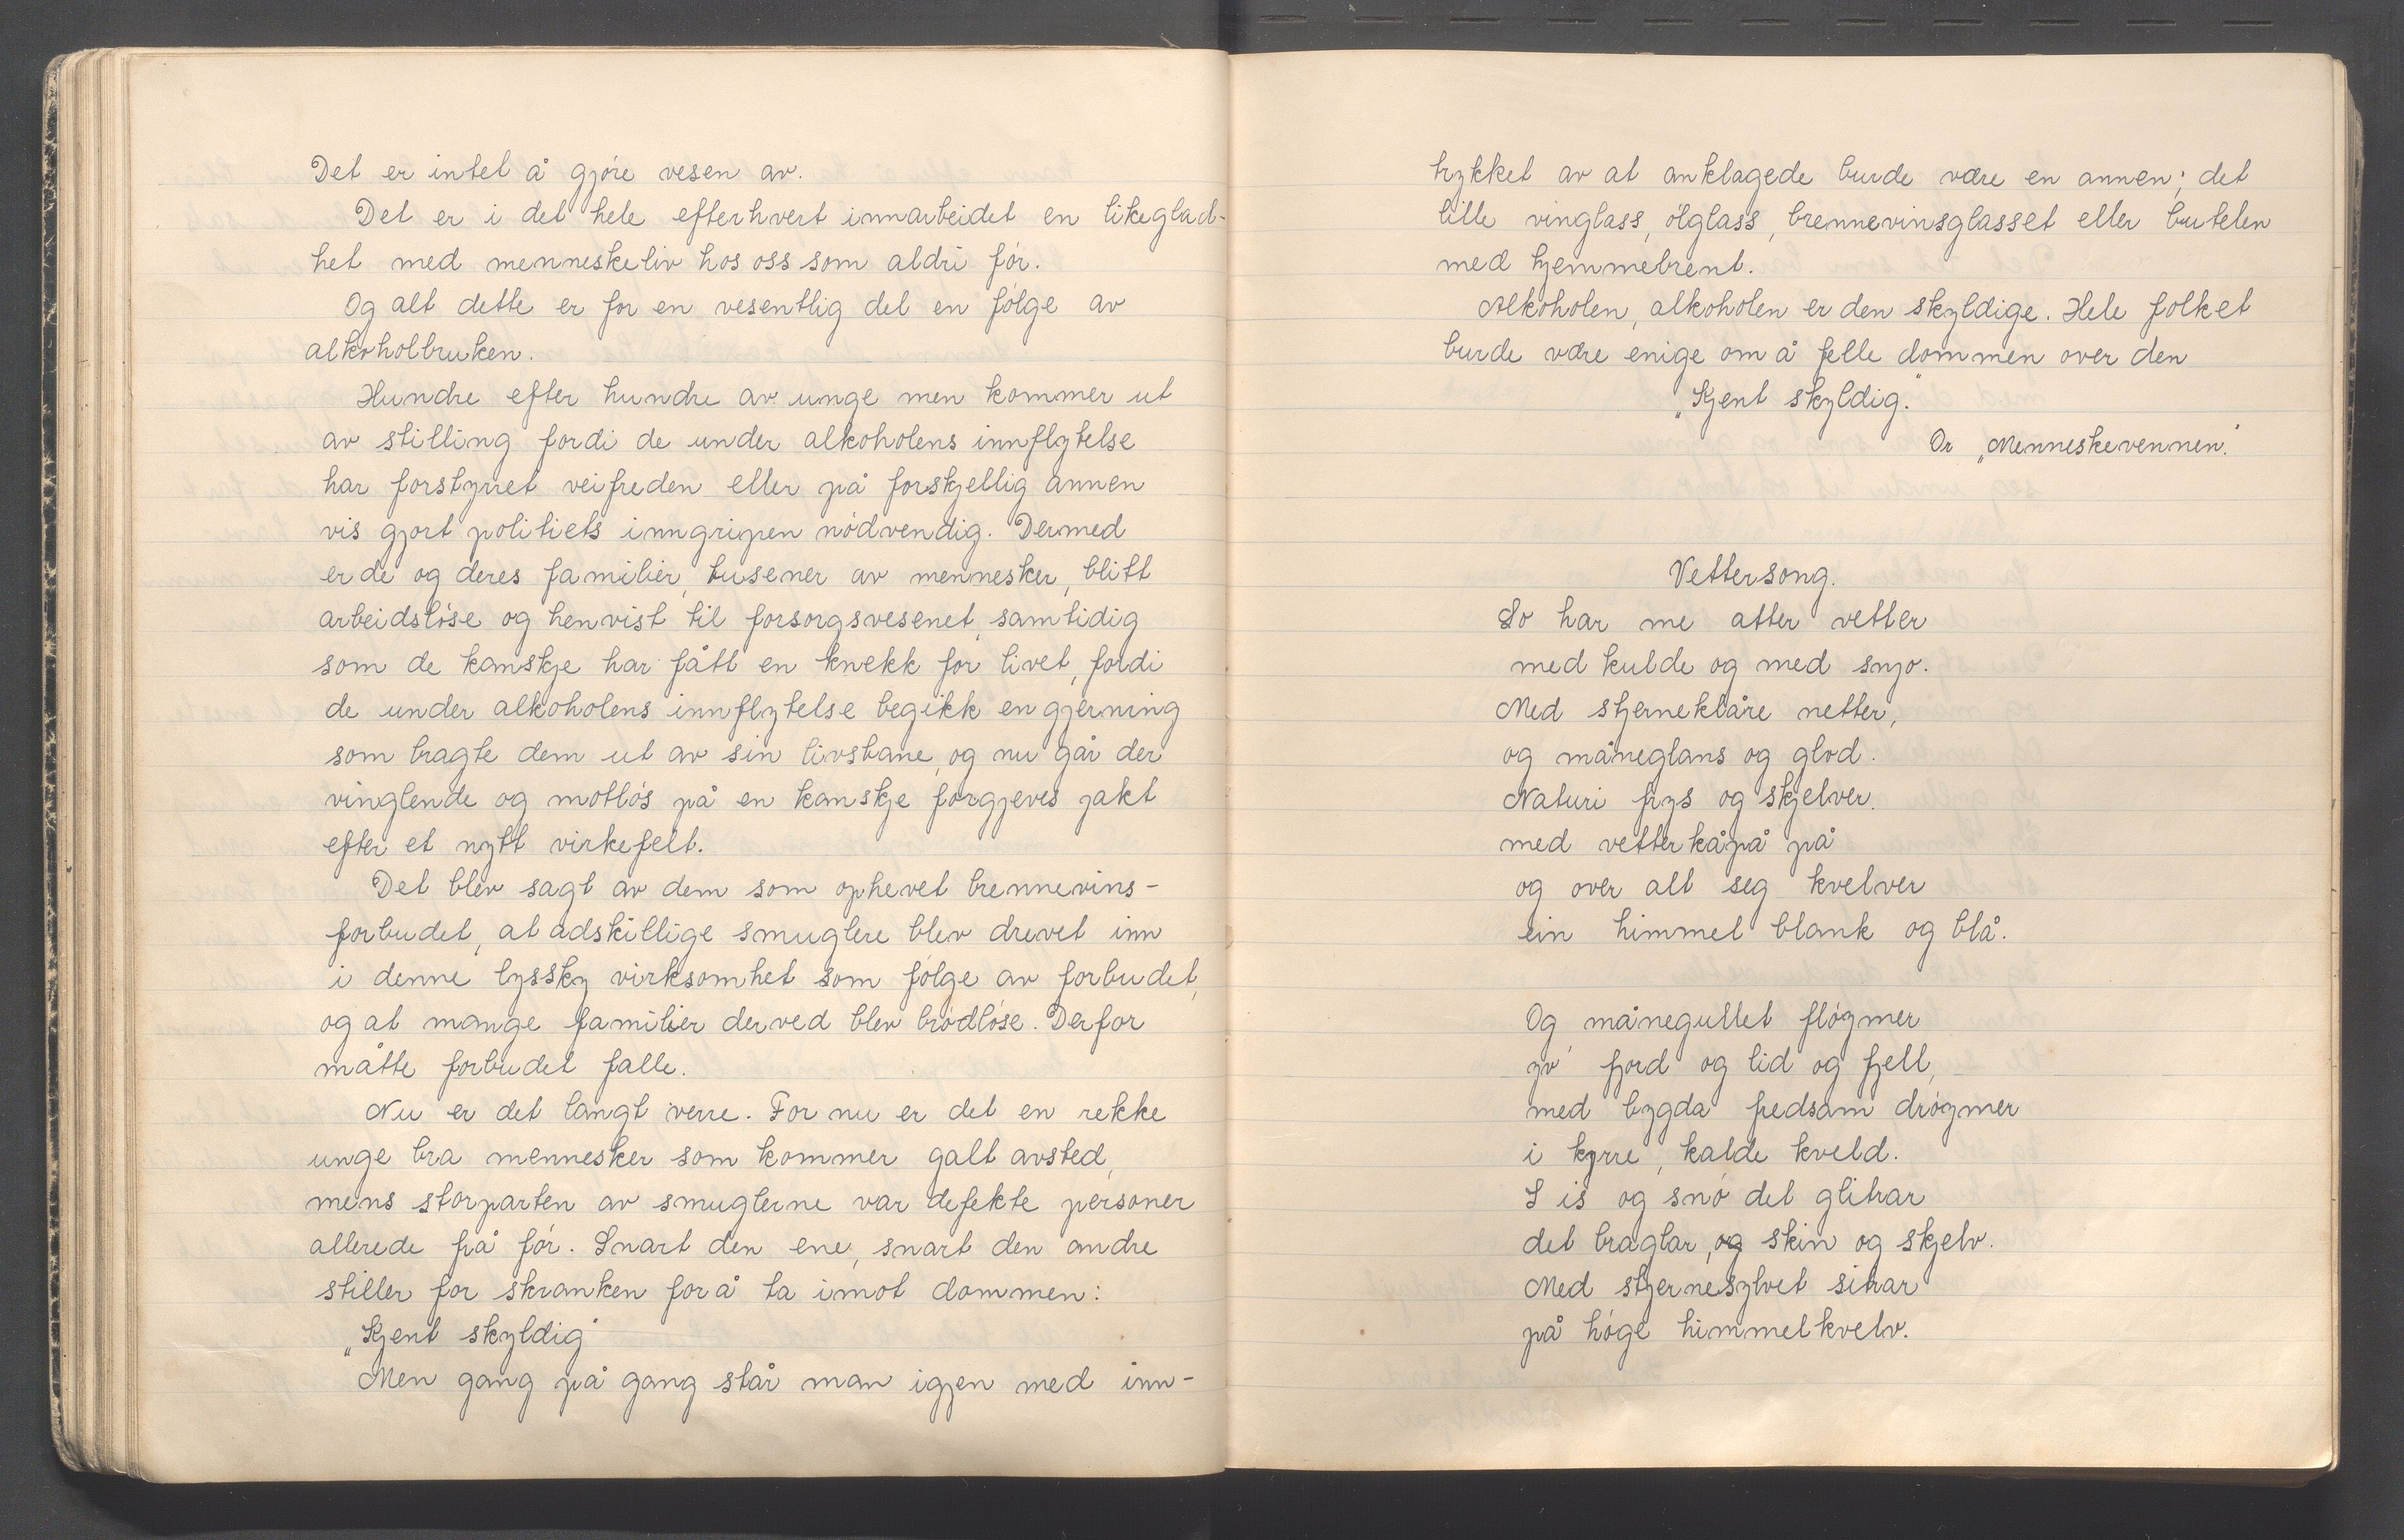 Det er intet å gjøre vesen av.
Det er i det hele efterhvert innarbeidet en likeglad-
het med menneskeliv hos oss som aldri før.
Og alt dette er for en vesentlig del en følge av
alkoholbruken.
Hundre efter hundre av unge men kommer ut
av stilling fordi de under alkoholens innflytelse
har forstyrret veifreden eller på forskjellig annen
vis gjort politiets inngripen nødvendig. Dermed
er de og deres familier, tusener av mennesker, blitt
arbeidsløse og henvist til forsorgsvesenet, samtidig
som de kanskje har fått en knekk for livet, fordi
de under alkoholens innflytelse begikk en gjerning
som bragte dem ut av sin livsbane, og nu går der
vinglende og motløs på en kanskje forgjeves jakt
efter et nytt virkefelt.
Det blev sagt av dem som ophevet brennevins-
forbudet, at adskillige smuglere blev drevet inn
i denne lyssky virksomhet som følge av forbudet,
og at mange familier derved blev brødløse. Derfor
måtte forbudet falle.
Nu er det langt verre. For nu er det en rekke
unge bra mennesker som kommer galt avsted,
mens storparten av smuglerne var defekte personer
allerede frå før. Snart den ene, snart den andre
stiller for skranken for å ta imot dommen:
„Kjent skyldig"
Men gang på gang står man igjen med inn-
trykket av at anklagede burde være en annen; det
lille vinglass, ølglass, brennevinsglasset eller butelen
med hjemmebrent.
Alkoholen, alkoholen er den skyldige. Hele folket
burde være enige om å felle dommen over den
„Kjent skyldig."
Or „Menneskevennen."
Vettersong.
So har me atter vetter
med kulde og med snjo.
Med stjerneklåre netter,
og måneglans og glod.
Naturi frys og skjelver.
med vetterkåpå på
og over alt seg kvelver
ein himmel blank og blå.
Og månegullet fløymer
yv' fjord og lid og fjell,
med bygda fredsam drøymer
i kyrre, kalde kveld.
I is og snø det glitrar
det braglar, og skin og skjelv.
Med stjernesylvet sitrar
på høge himmelkvelv.